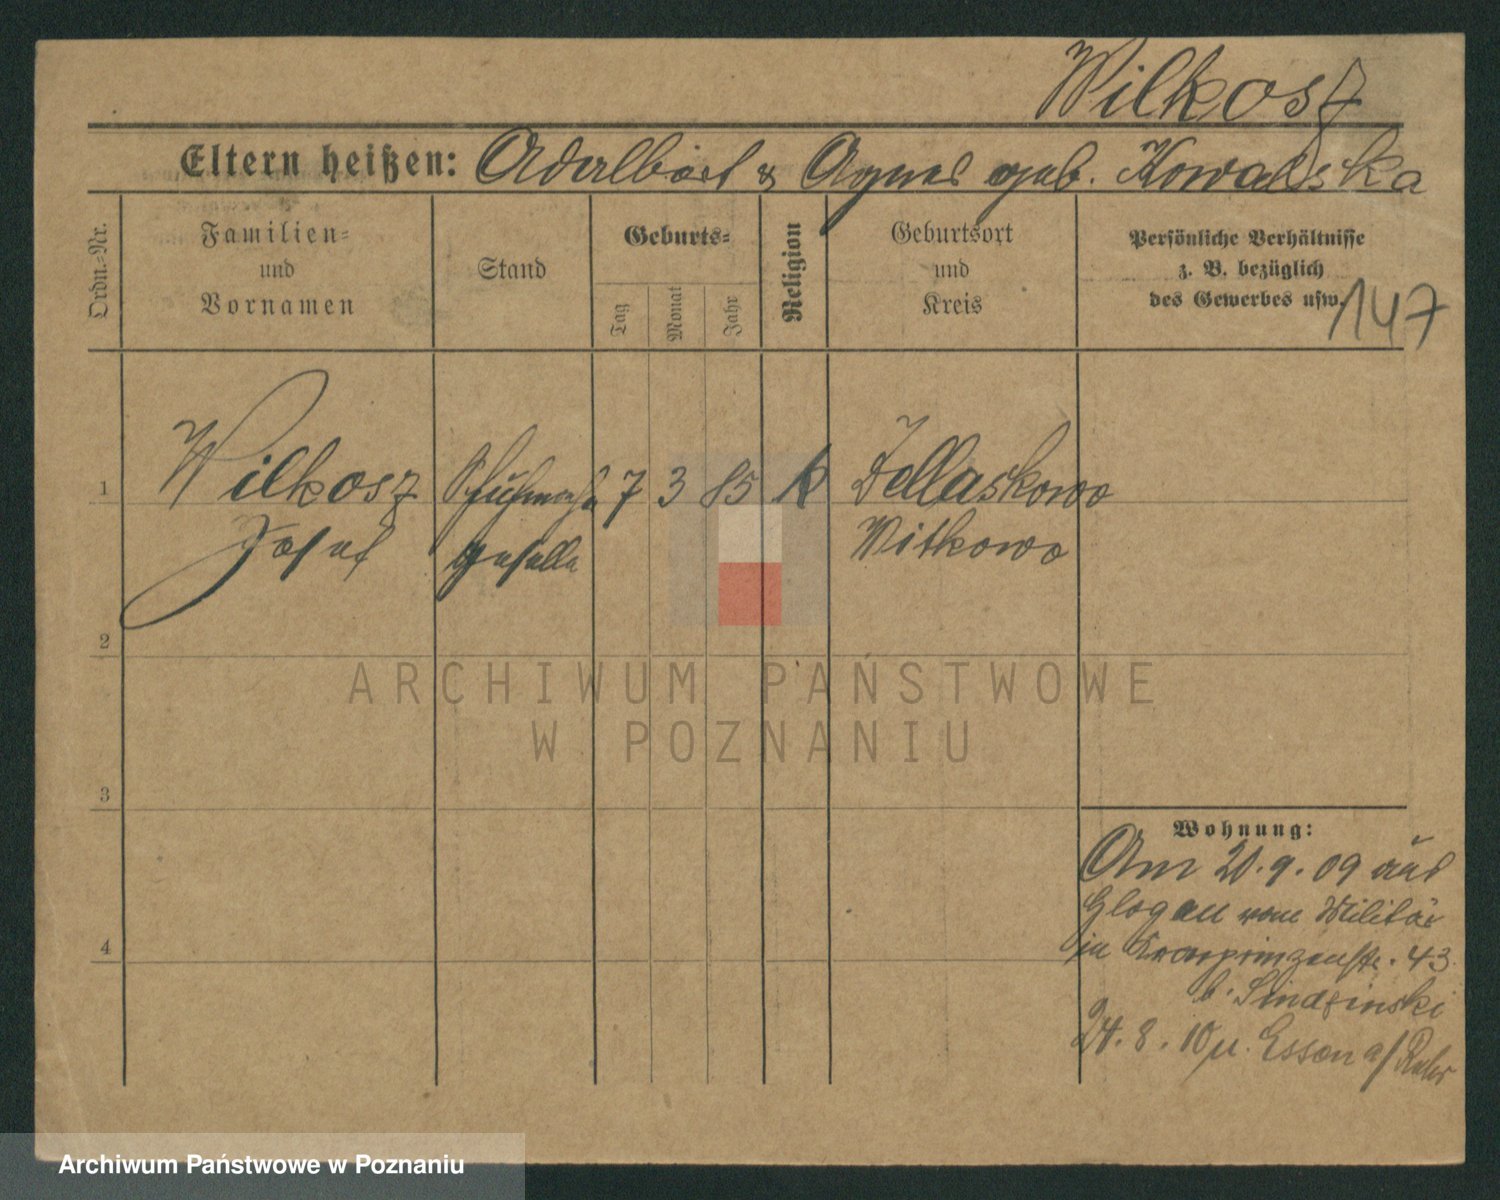 Wilkosz
Eltern heißen: Adalbert & Agnes geb. Kowalska
Ordn.=Nr.
Familien=
und
Vornamen
Stand
Geburts=
Tag
Monat
Jahr
Religion
Geburtsort
und
Kreis
Persönliche Verhältnisse
z. B. bezüglich
des Gewerbes usw.
147
1
Wilkosz
Josef
Schuhmach
geselle
7 3 85 k
Witkowo
2
3
4
ARCHIWUM PAŃSTWOWE
W POZNANIU
Wohnung:
Am 20.9.09 aus
Glogau vom Militär
in Kronprinzenstr. 43
b.
24.8.10 n. Essen a/Ruhr
Archiwum Państwowe w Poznaniu